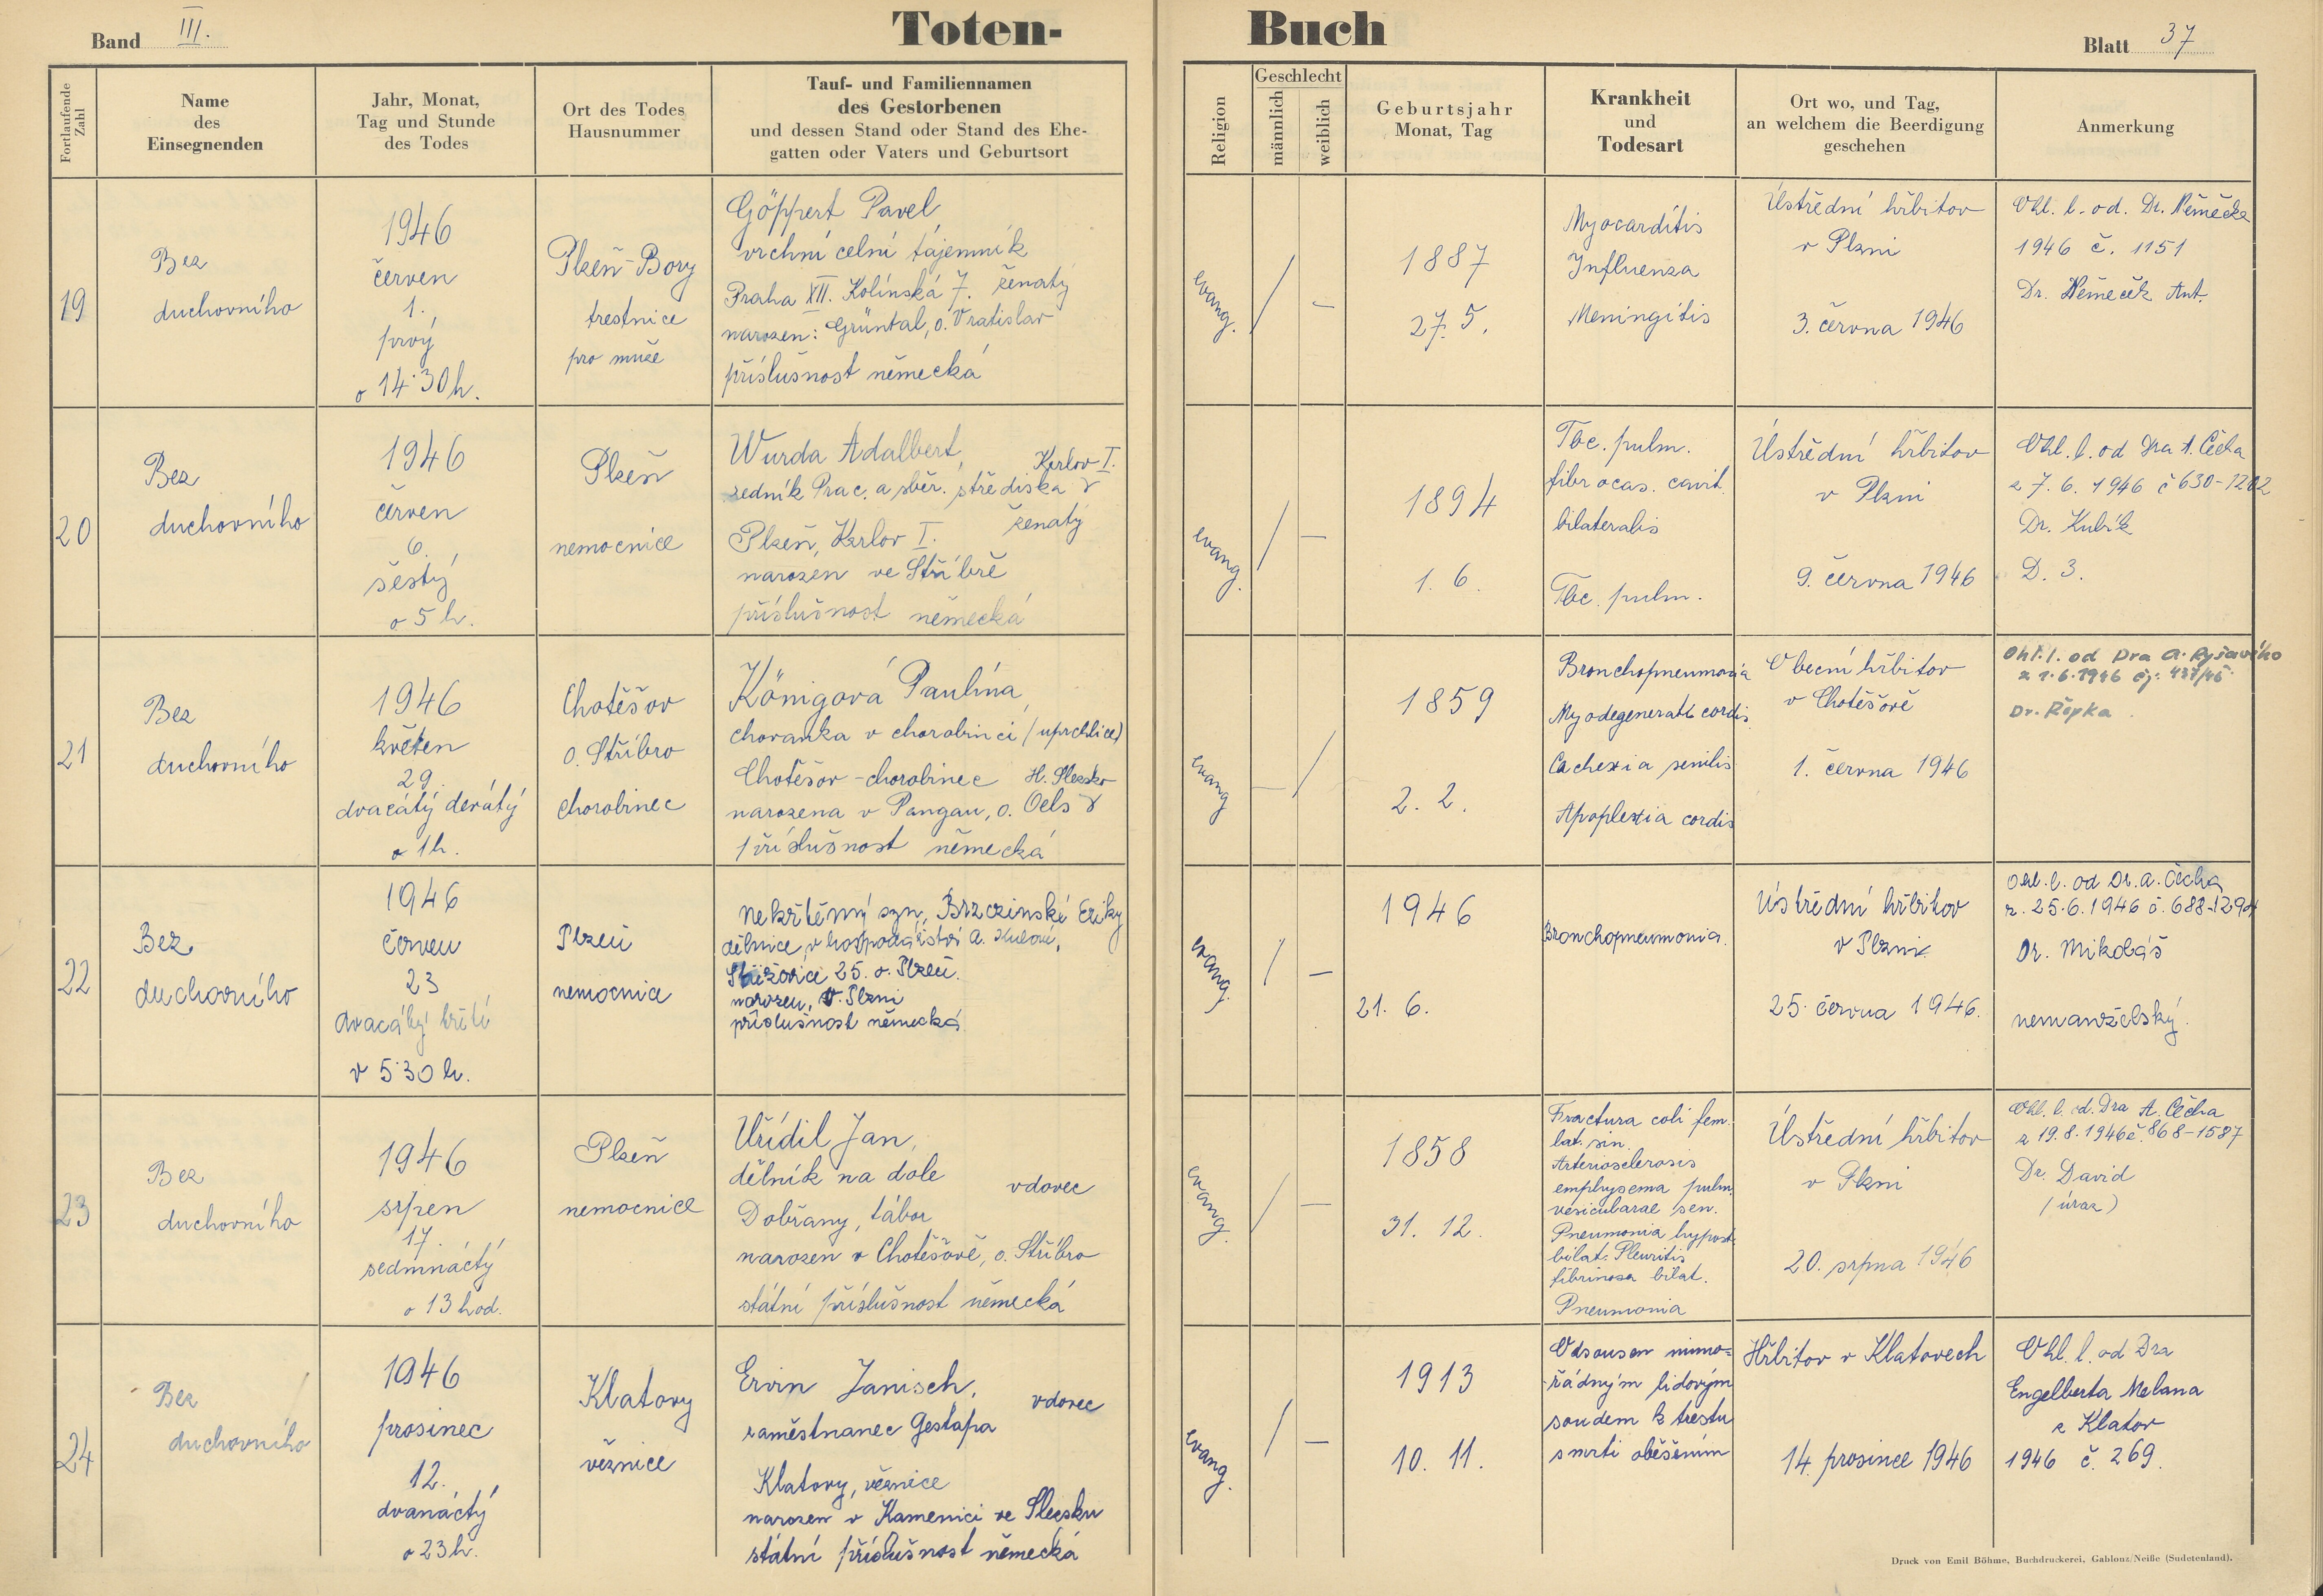 Band III.
Toten-Buch
Blatt 37
Fortlaufende Zahl
Name
des
Einsegnenden
Jahr, Monat,
Tag und Stunde
des Todes
Ort des Todes
Hausnummer
Tauf- und Familiennamen
des Gestorbenen
und dessen Stand oder Stand des Ehe-
gatten oder Vaters und Geburtsort
Religion
Geschlecht
männlich
weiblich
Geburtsjahr
Monat, Tag
Krankheit
und
Todesart
Ort wo, und Tag,
an welchem die Beerdigung
geschehen
Anmerkung
19
Bez
duchovního
1946
červen
1.
prvý
o 14·30 h.
Plzeň-Bory
trestnice
pro muže
Göppert Pavel,
vrchní celní tájemník
Praha XII. Kolínská 7. ženatý
narozen: Grüntal, o. Vratislav
příslušnost německá
evang.
/
–
1887
27. 5.
Myocarditis
Influenza
Meningitis
Ústřední hřbitov
v Plzni
3. června 1946
Ohl. l. od. Dr. Němečka
1946 č. 1151
Dr. Němeček Ant.
20
Bez
duchovního
1946
červen
6.
šestý
o 5 h.
Plzeň
nemocnice
Wurda Adalbert,
zedník Prac. a sběr. střediska Karlov I.
Plzeň, Karlov I. ženatý
narozen ve Stříbře
příslušnost německá
evang.
/
–
1894
1. 6.
Tbc. pulm.
fibrocas. cavit.
bilateralis
Tbc. pulm.
Ústřední hřbitov
v Plzni
9. června 1946
Ohl. l. od Dra A. Čecha
z 7. 6. 1946 č 630-1202
Dr. Kubík
D. 3.
21
Bez
duchovního
1946
květen
29.
dvacátý devátý
o 1 h.
Chotěšov
o. Stříbro
chorobinec
Königová Paulína,
chovanka v chorobinci (uprchlice)
Chotěšov - chorobinec H. Slezsko
narozena v Pangau, o. Oels
příslušnost německá
evang
–
/
1859
2. 2.
Bronchopneumonia
Myodegeneratio cordis
Cachexia senilis
Apoplexia cordis
Obecní hřbitov
v Chotěšově
1. června 1946
Ohl. l. od Dra A. Ryšavého
z 1. 6. 1946 čj: 437/46
Dr. Řepka
22
Bez
duchovního
1946
červen
23
dvacátý třetí
v 5·30 h.
Plzeň
nemocnice
nekřtěný syn, Brzezinské Eriky
dělnice v hospodářství A.
25. o. Plzeň.
narozen, v. Plzni
příslušnost německá
evang.
/
–
1946
21. 6.
Bronchopneumonia.
Ústřední hřbitov
v Plzni
25. června 1946.
Ohl. l. od Dr. A. Čecha
z. 25. 6. 1946 č. 688-1294
Dr. Mikoláš
nemanželský.
23
Bez
duchovního
1946
srpen
17.
sedmnáctý
o 13 hod.
Plzeň
nemocnice
Uřídil Jan,
dělník na dole vdovec
Dobřany, tábor
narozen v Chotěšově, o. Stříbro
státní příslušnost německá
evang.
/
–
1858
31. 12.
Fractura coli fem.
lat. sin.
Arteriosclerosis
emphysema pulm.
vesicularae sen.
Pneumonia hypost.
bilat. Pleuritis
fibrinosa bilat.
Pneumonia
Ústřední hřbitov
v Plzni
20. srpna 1946
Ohl. l. od. Dra A. Čecha
z 19. 8. 1946 č. 868-1587
Dr. David
(úraz)
24
Bez
duchovního
1946
prosinec
12.
dvanáctý
o 23 h.
Klatovy
věznice
Ervin Janisch, vdovec
zaměstnanec Gestapa
Klatovy, věznice
narozen v Kamenici ve Slezsku
státní příslušnost německá
evang.
/
–
1913
10. 11.
Odsouzen mimo=
řádným lidovým
soudem k trestu
smrti oběšením
Hřbitov v Klatovech
14. prosince 1946
Ohl. l. od Dra
Engelberta Melana
z Klatov
1946 č. 269.
Druck von Emil Böhme, Buchdruckerei, Gablonz/Neiße (Sudetenland).